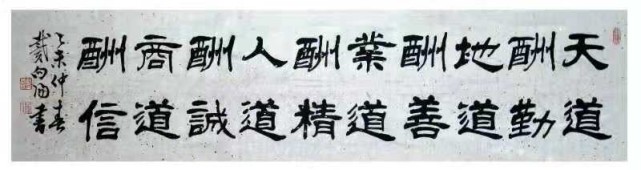 天道
酬勤
地道
酬善
業道
酬精
人道
酬誠
商道
酬信
乙未仲春
戴向書